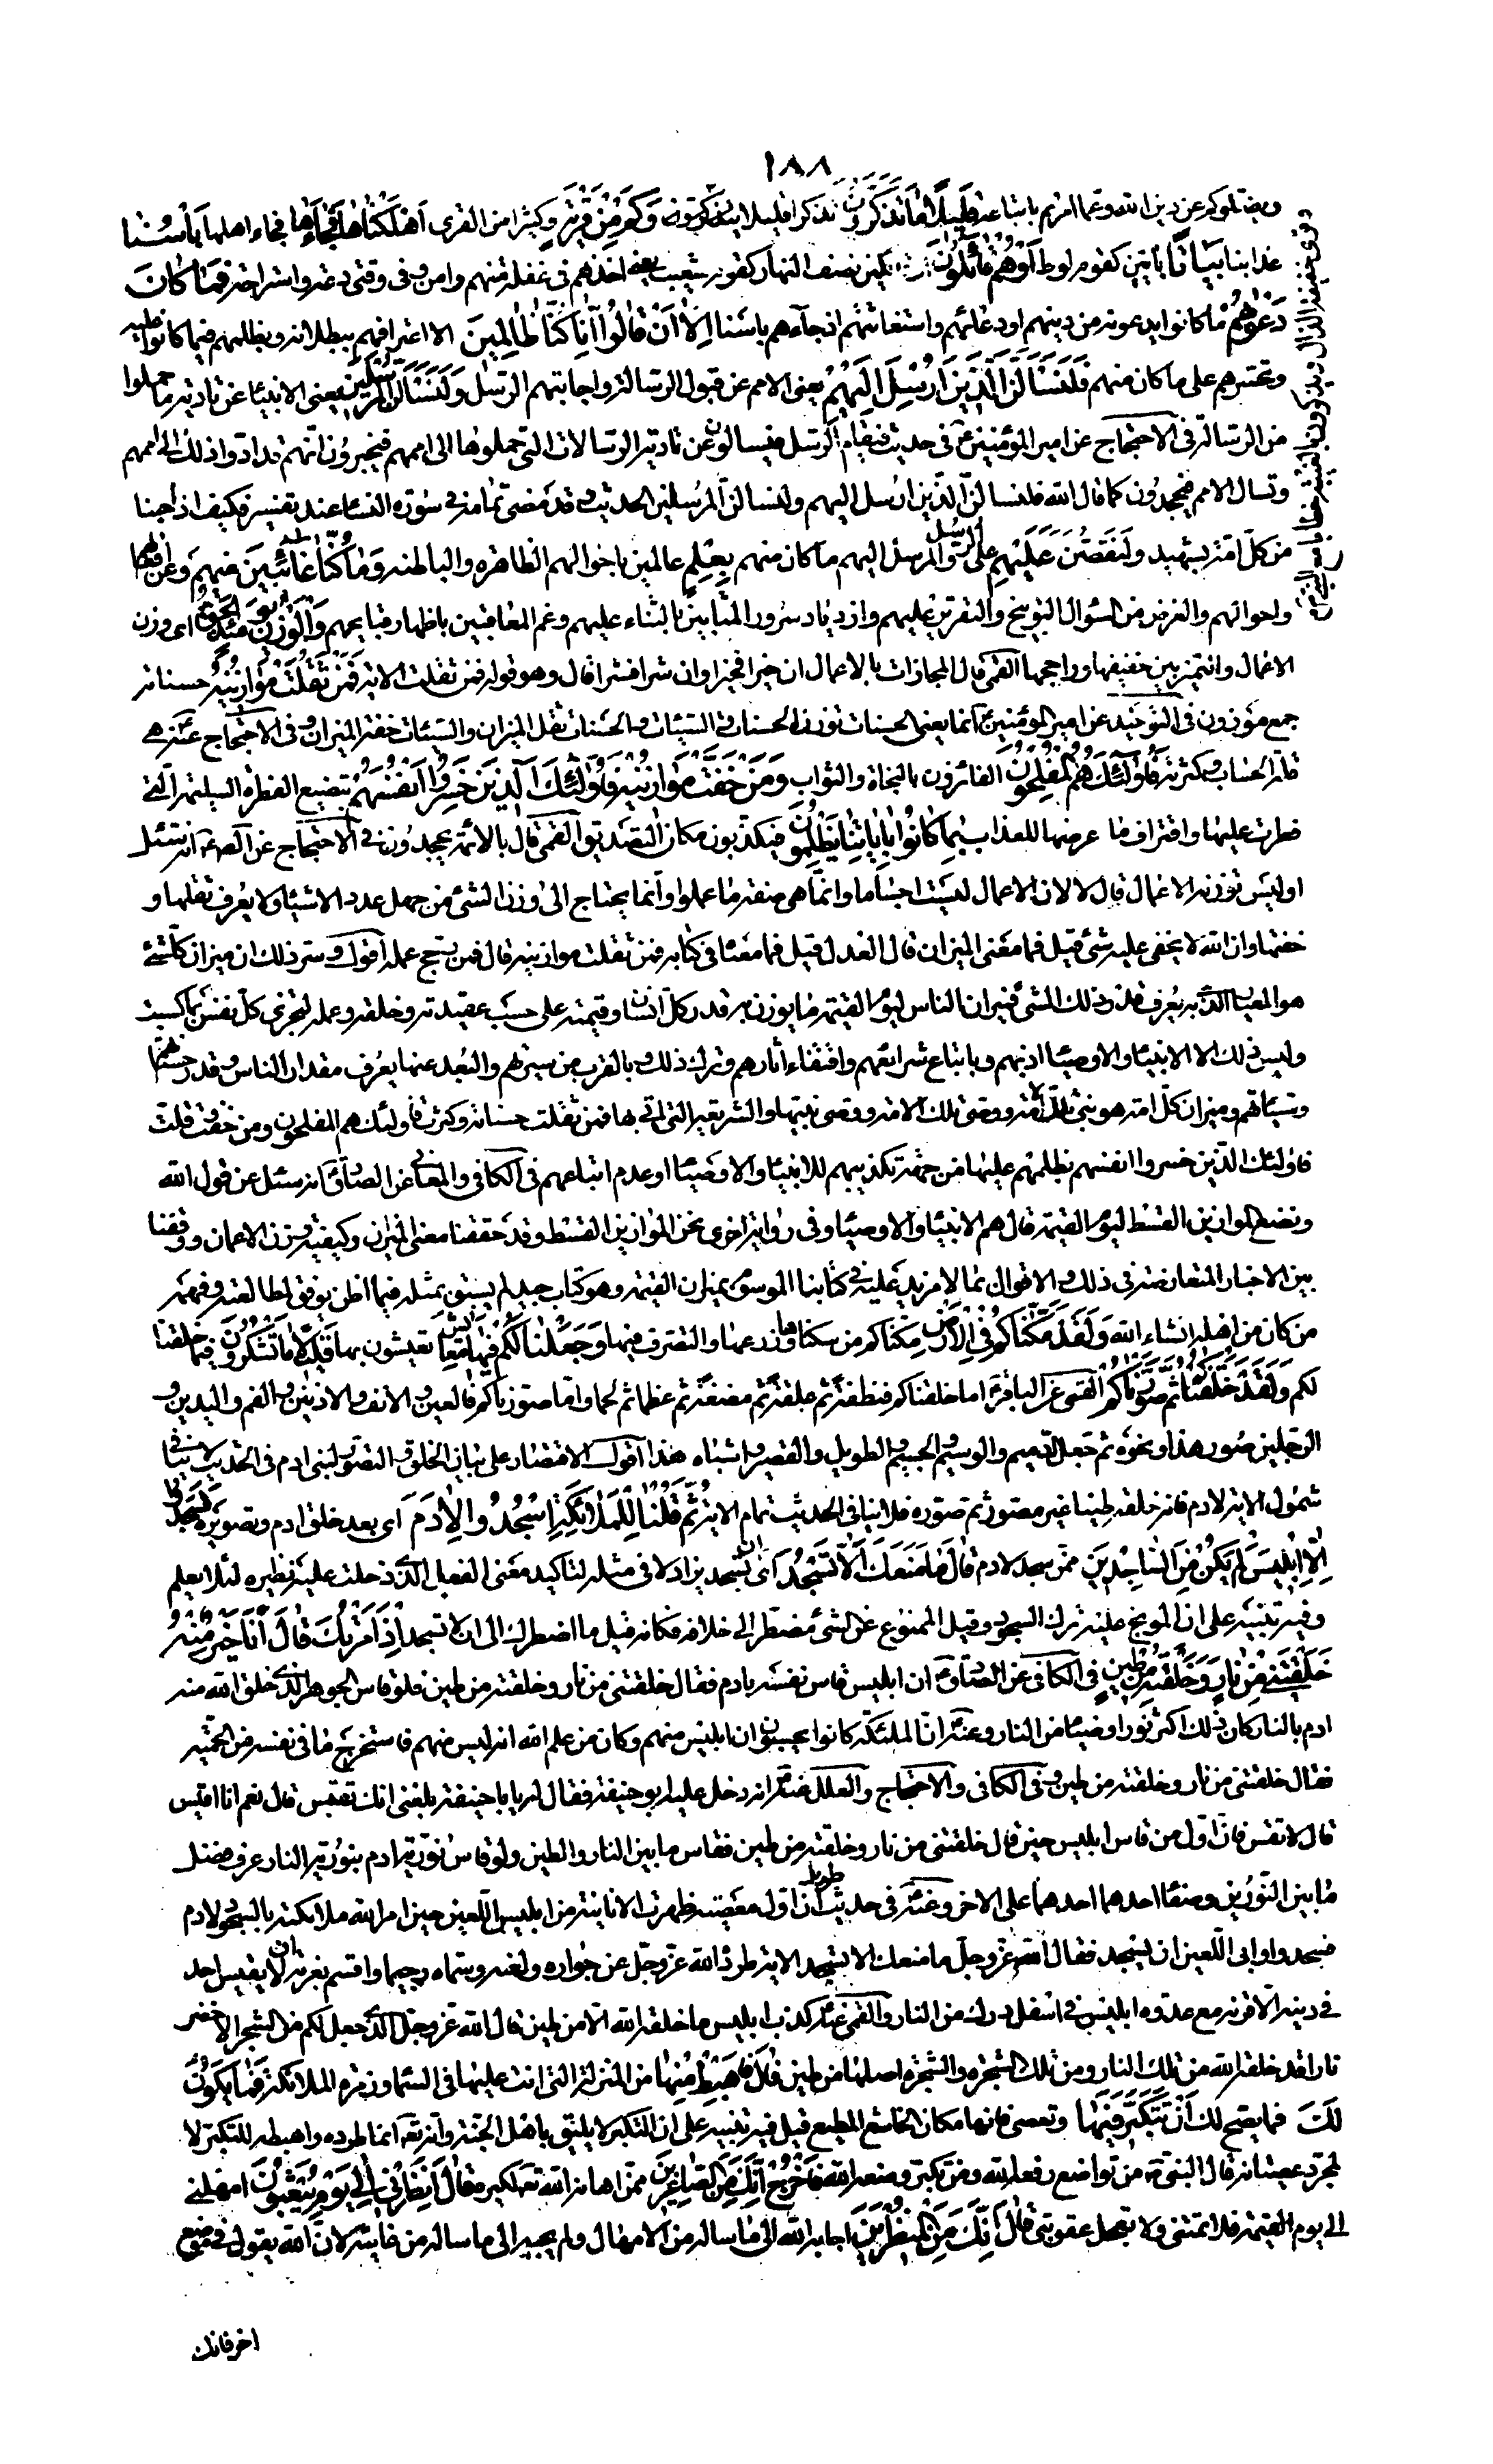 ١٨٨
ويضلوكم عن دين الله وعما امرتم باتباعه قَلِيلًا مَا تَذَكَّرُونَ تذكرا قليلا يتذكرون وَكَمْ مِنْ قَرْيَةٍ وكثيرا من القرى اَهْلَكْنَاهَا فَجَاءَهَا فجاء اهلها بَأْسُنَا
عذابنا بَيَاتًا بائتين كقوم لوط اَوْهُمْ قَائِلُونَ قائلين نصف النهار كقوم شعيب يعنى اخذهم فى غفلة منهم وامن وفى وقتى دعة واستراحة فَمَا كَانَ
دَعْوَاهُمْ ما كانوا يدعونه من دينهم او دعائهم واستغاثتهم اذ جاءهم باسنا اِلَّا اَنْ قَالُوا اِنَّا كُنَّا ظَالِمِينَ الا اعترافهم ببطلانه وبظلمهم فيما كانوا عليه
وتحسرهم على ما كان منهم فَلَنَسْأَلَنَّ الَّذِينَ اُرْسِلَ اِلَيْهِمْ يعنى الامم عن قبول الرسالة واجابتهم الرسل وَلَنَسْأَلَنَّ الْمُرْسَلِينَ يعنى الانبياء عن تادية ما حملوا
من الرسالة فى الاحتجاج عن امير المؤمنين ع فى حديث فيقام الرسل فيسالون عن تادية الرسالات التى حملوها الى اممهم فيخبرون انهم قد ادوا ذلك الى اممهم
وتسال الامم فيجحدون كما قال الله فلنسالن الذين ارسل اليهم ولنسالن المرسلين الحديث وقد مضى تمامه فى سورة النساء عند تفسير فكيف اذا جئنا
من كل امة بشهيد وَلَنَقُصَّنَّ عَلَيْهِمْ على الرسل والمرسل اليهم ما كان منهم بِعِلْمٍ عالمين باحوالهم الظاهرة والباطنة وَمَا كُنَّا غَائِبِينَ عنهم وعن افعالهم
واحوالهم والغرض من السؤال التوبيخ والتقرير عليهم وازدياد سرور المثابين بالثناء عليهم وغم المعاقبين باظهار قبايحهم وَالْوَزْنُ يَوْمَئِذٍ الْحَقُّ اى وزن
الاعمال والتميز بين خفيفها وراجحها القمى قال المجازات بالاعمال ان خيرا فخيرا وان شرا فشرا قال وهو قوله فمن ثقلت الاية فَمَنْ ثَقُلَتْ مَوَازِينُهُ حسناته
جمع موزون فى التوحيد عن امير المؤمنين ع انما يعنى الحسنات توزن الحسنات والسيئات والحسنات ثقل الميزان والسيئات خفة الميزان وفى الاحتجاج عنه ع هى
قلة الحساب وكثرته فَاُولٰئِكَ هُمُ الْمُفْلِحُونَ الفائزون بالنجاة والثواب وَمَنْ خَفَّتْ مَوَازِينُهُ فَاُولٰئِكَ الَّذِينَ خَسِرُوا اَنْفُسَهُمْ بتضييع الفطرة السليمة التى
فطرت عليها واقتراف ما عرضها للعذاب بِمَا كَانُوا بِاٰيَاتِنَا يَظْلِمُونَ فيكذبون مكان التصديق القمى قال بالائمة يجحدون فى الاحتجاج عن الصادق ع انه سئل
اوليس توزن الاعمال قال لا لان الاعمال ليست اجساما وانما هى صفة ما عملوا وانما يحتاج الى وزن الشئ من جهل عدد الاشياء ولا يعرف ثقلها و
خفتها وان الله لا يخفى عليه شئ قيل فما معنى الميزان قال العدل قيل فما معناه فى كتابه فمن ثقلت موازينه قال فمن رجح عمله اقول وسر ذلك ان ميزان كل شئ
هو المعيار الذى به يعرف قدر ذلك الشئ فميزان الناس ليوم القيمة ما يوزن به قدر كل انسان وقيمته على حسب عقيدته وخلقه وعمله لتجزى كل نفس بما كسبت
وليس ذلك الا الانبياء والاوصياء اذ بهم وباتباع شرايعهم واقتفاء آثارهم وترك ذلك وبالقرب من سيرتهم والبعد عنها يعرف مقدار الناس وقدر حسناتهم
وسيئاتهم وميزان كل امة هو نبى تلك الامة ووصى تلك الامة ووصى نبيها والشريعة التى اتى بها فمن ثقلت حسناته وكثرت فاولئك هم المفلحون ومن خفت وقلت
فاولئك الذين خسروا انفسهم بظلمهم عليها من جهة تكذيبهم للانبياء والاوصياء او عدم اتباعهم فى الكافى والمعانى عن الصادق ع انه سئل عن قول الله
ونضع الموازين القسط ليوم القيمة قال هم الانبياء والاوصياء وفى رواية اخرى نحن الموازين القسط وقد حققنا معنى الميزان وكيفية وزن الاعمال ووفقنا
بين الاخبار المتعارضة فى ذلك والاقوال بما لا مزيد عليه فى كتابنا الموسوم بميزان القيمة وهو كتاب جيد لم يسبق بمثله فيما اظن يوفق لمطالعته وفهمه
من كان من اهله انشاء الله وَلَقَدْ مَكَّنَّاكُمْ فِى الْاَرْضِ مكناكم من سكناها وزرعها والتصرف فيها وَجَعَلْنَا لَكُمْ فِيهَا مَعَايِشَ تعيشون بها قَلِيلًا مَا تَشْكُرُونَ فيما خلقنا
لكم وَلَقَدْ خَلَقْنَاكُمْ ثُمَّ صَوَّرْنَاكُمْ القمى عن الباقر ع اما خلقناكم فنطفة ثم علقة ثم مضغة ثم عظاما ثم لحما واما صورناكم فالعين والانف والاذنين والفم واليدين و
الرجلين صور هذا ونحوه ثم جعل الدميم والوسيم والجسيم والطويل والقصير واشباه هذا اقول الاقتصار على بيان الخلق والتصوير لبنى ادم فى الحديث لا ينافى
شمول الاية لادم فانه خلقه طينا غير مصور ثم صوره فلا ينافى الحديث تمام الاية ثُمَّ قُلْنَا لِلْمَلَائِكَةِ اسْجُدُوا لِاٰدَمَ اى بعد خلق ادم وتصويره فَسَجَدُوا
اِلَّا اِبْلِيسَ لَمْ يَكُنْ مِنَ السَّاجِدِينَ ممن سجد لادم قَالَ مَا مَنَعَكَ اَلَّا تَسْجُدَ اى ان تسجد يزاد لا فى مثله لتاكيد معنى الفعل الذى دخلت عليه نظيره لئلا يعلم
وفيه تنبيه على ان الموبخ عليه ترك السجود وقيل الممنوع عن الشئ مضطر الى خلافه فكانه قيل ما اضطرك الى ان لا تسجد اِذْ اَمَرْتُكَ قَالَ اَنَا خَيْرٌ مِنْهُ
خَلَقْتَنِى مِنْ نَارٍ وَخَلَقْتَهُ مِنْ طِينٍ فى الكافى عن الصادق ع ان ابليس قاس نفسه بادم فقال خلقتنى من نار وخلقته من طين فلو قاس الجوهر الذى خلق الله منه
ادم بالنار كان ذلك اكثر نورا وضياء من النار وعنه ع ان الملئكة كانوا يحسبون ان ابليس منهم وكان من علم الله انه ليس منهم فاستخرج ما فى نفسه من الحمية
فقال خلقتنى من نار وخلقته من طين وفى الكافى والاحتجاج والعلل عنه ع انه دخل عليه ابو حنيفة فقال له يا ابا حنيفة بلغنى انك تقيس قال نعم انا اقيس
قال لا تقس فان اول من قاس ابليس حين قال خلقتنى من نار وخلقته من طين فقاس ما بين النار والطين ولو قاس نورية ادم بنورية النار عرف فضل
ما بين النورين وصفاء احدهما على الاخر وعنه ع فى حديث طويل ان اول معصية ظهرت الانانية من ابليس اللعين حين امر الله ملائكته بالسجود لادم
فسجدوا وابى اللعين ان يسجد فقال الله عز وجل ما منعك الا تسجد الاية طرده الله عز وجل عن جواره ولعنه وسماه رجيما واقسم بعزته ان لا يقيس احد
فى دينه الا قرنه مع عدوه ابليس فى اسفل درك من النار والقمى عنه ع كذب ابليس ما خلقه الله الا من طين قال الله عز وجل الذى جعل لكم من الشجر الاخضر
نارا قد خلقه الله من تلك النار ومن تلك الشجرة والشجرة اصلها من طين قَالَ فَاهْبِطْ مِنْهَا من المنزلة التى انت عليها فى السماء وزمرة الملائكة فَمَا يَكُونُ
لَكَ فما يصح لك اَنْ تَتَكَبَّرَ فِيهَا وتعصى فانها مكان الخاشع المطيع قيل فيه تنبيه على ان التكبر لا يليق باهل الجنة وانه تع انما طرده واهبطه للتكبر لا
لمجرد عصيانه قال النبى ص من تواضع رفعه الله ومن تكبر وضعه الله فَاخْرُجْ اِنَّكَ مِنَ الصَّاغِرِينَ ممن اهانه الله تع لكبره قَالَ اَنْظِرْنِى اِلٰى يَوْمِ يُبْعَثُونَ امهلنى
الى يوم القيمة فلا تمتنى ولا تعجل عقوبتى قَالَ اِنَّكَ مِنَ الْمُنْظَرِينَ اجابه الله الى ما ساله من الامهال ولم يجبه الى ما ساله من غايته لان الله يقول فى موضع
اخر فانك